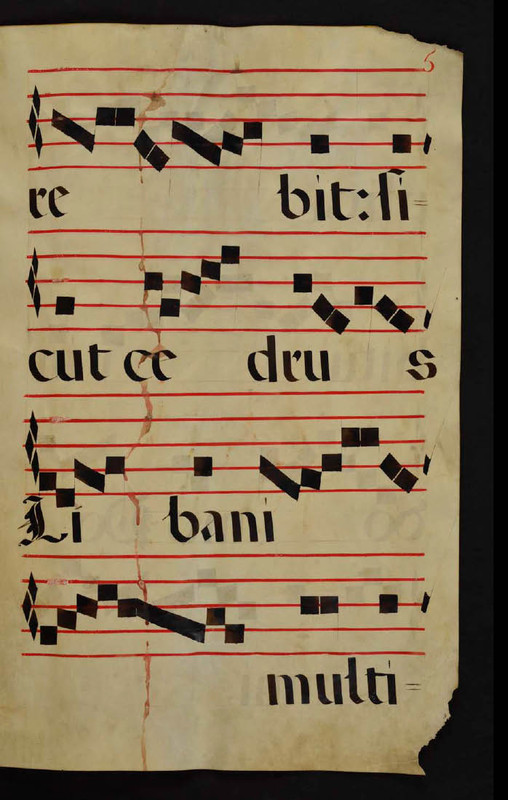 5
re bit: si=
cut ce dru s
Li bani
multi=